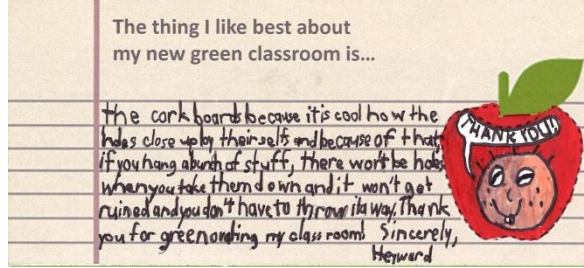 The thing I like best about
my new green classroom is...
the cork boards because it is cool how the
holes close up by their selfs and because of that,
if you hang a bunch of stuff, there won't be holes
when you take them down and it won't get
ruined and you don't have to throw it a way. Thank
you for greenording my class room! Sincerely,
Heyward
THANK YOU!